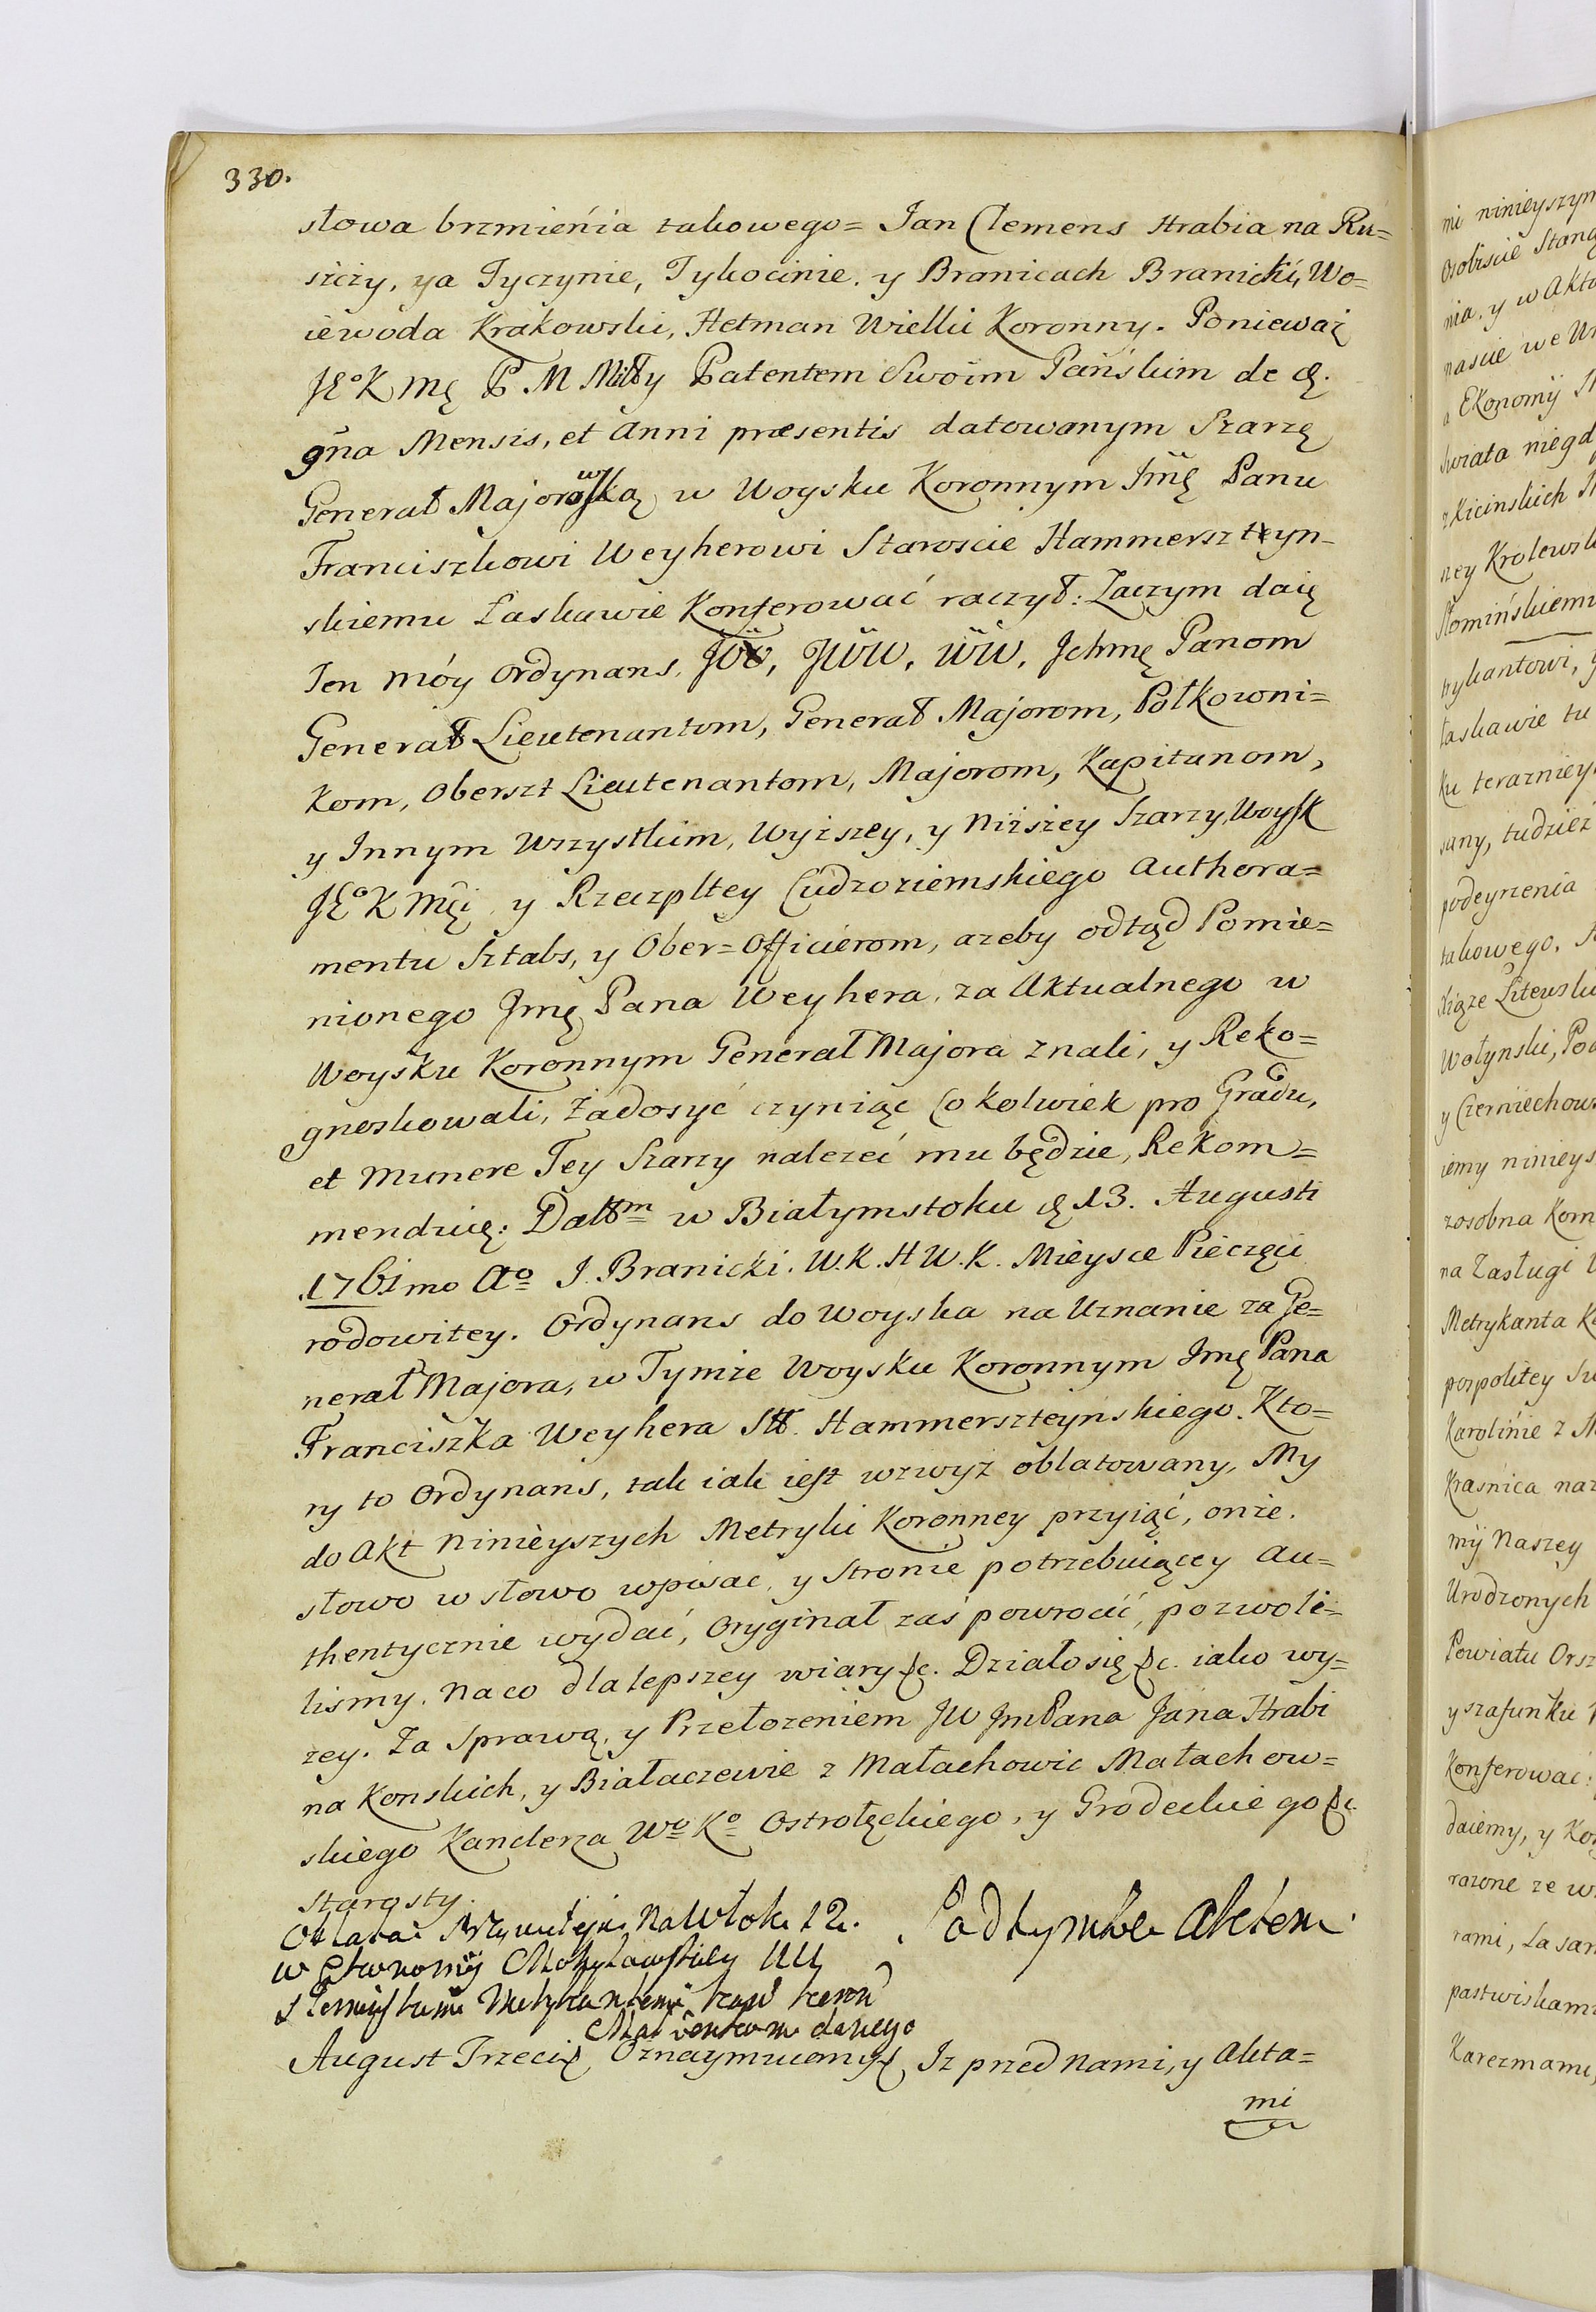 330.
słowa brzmienia takowego= Jan Clemens Hrabia na Ru=
szczy, na Tyczynie, Tykocinie, y Branicach Branicki, Wo=
iewoda Krakowski, Hetman Wielki Koronny. Ponieważ
JEº K Mę P. M Miłły Patentem Swoim Pańskim de d.
9na Mensis, et Anni præsentis datowanym Szarzę
Generał Majorowską w Woysku Koronnym Jmę Panu
Franciszkowi Weyherowi Staroscie Hammersztyn-
skiemu Łaskawie Konferować raczył: Zaczym daię
Ten móy Ordynans, JWW, WW, Jchmę Panom
Generał Lieutenantom, Generał Majorom, Połkowni=
kom, Oberszt Lieutenantom, Majorom, Kapitanom,
y Innym Wszystkim, Wyższey, y Niższey Szarzy, Woysk
JEº K Męi y Rzeczpltey Cudzoziemskiego Authora=
mentu Sztabs, y Ober=Officierom, azeby odtąd Pomie=
nionego Jmę Pana Weyhera, za Aktualnego w
Woysku Koronnym Generał Majora znali, y Reko=
gnoskowali, Zadosyć czyniąc Cokolwiek pro Gradu,
et Munere Tey Szarzy nalezeć mu będzie, Rekom=
menduię: Dattm w Białymstoku d 13. Augusti
1761mo Aº J. Branicki. W. K. H W. K. Mieysce Pieczęci
rodowitey. Ordynans do Woyska na Uznanie za Ge=
nerał Majora, w Tymże Woysku Koronnym Jmę Pana
Franciszka Weyhera Stt. Hammerszteynskiego. Kto=
ry to Ordynans, tak iak iest wzwyż oblatowany, My
do Akt Ninieyszych Metryki Koronney przyiąć, onże.
słowo w słowo wpisac, y Stronie potrzebuiącey Au=
thentycznie wydać, Oryginał zaś powrocić, pozwoli=
lismy. Na co dla lepszey wiary &c. Działo się &c. iako wy=
zey. Za Sprawą, y Przełozeniem JW JmPana Jana Hrabi
na Konskich, y Białaczewie z Małachowic Małachow=
skiego Kanclerza Wº Kº Ostrołęckiego, y Grodeckiego &c.
Starosty.
Oblata Przywileju na Włok 12.
Pod tymże Aktem
w Ekonomij Mohylowskiey UU
Metrykantemi
Małżonkom danego
August Trzeci &, Oznaymuiemy & Iz przed Nami, y Akta=
mi
mi ninieyszym
Osobiscie Stanę
nia, y w Akta
nascie we
Ekonomij
swiata niegdy
z Kicinskich
szey Krolewsk
Słominskiemu
trykantowi,
łaskawie tu
ku terazniey
sany, tudziez
podeyrzenia
takowego.
Xiąze Litewski
Wołynski, Po
y Czerniechow
iemy nineys
zosobna Kom
na Zasługi
Metrykanta K
pospolitey
Karolinie z
Krasnica naz
mij Naszey
Urodzonych
Powiatu Orsz
y szafunku
Konferować:
daiemy, y
razone ze w
rami, Lasam
pastwiskami
Karczmami,